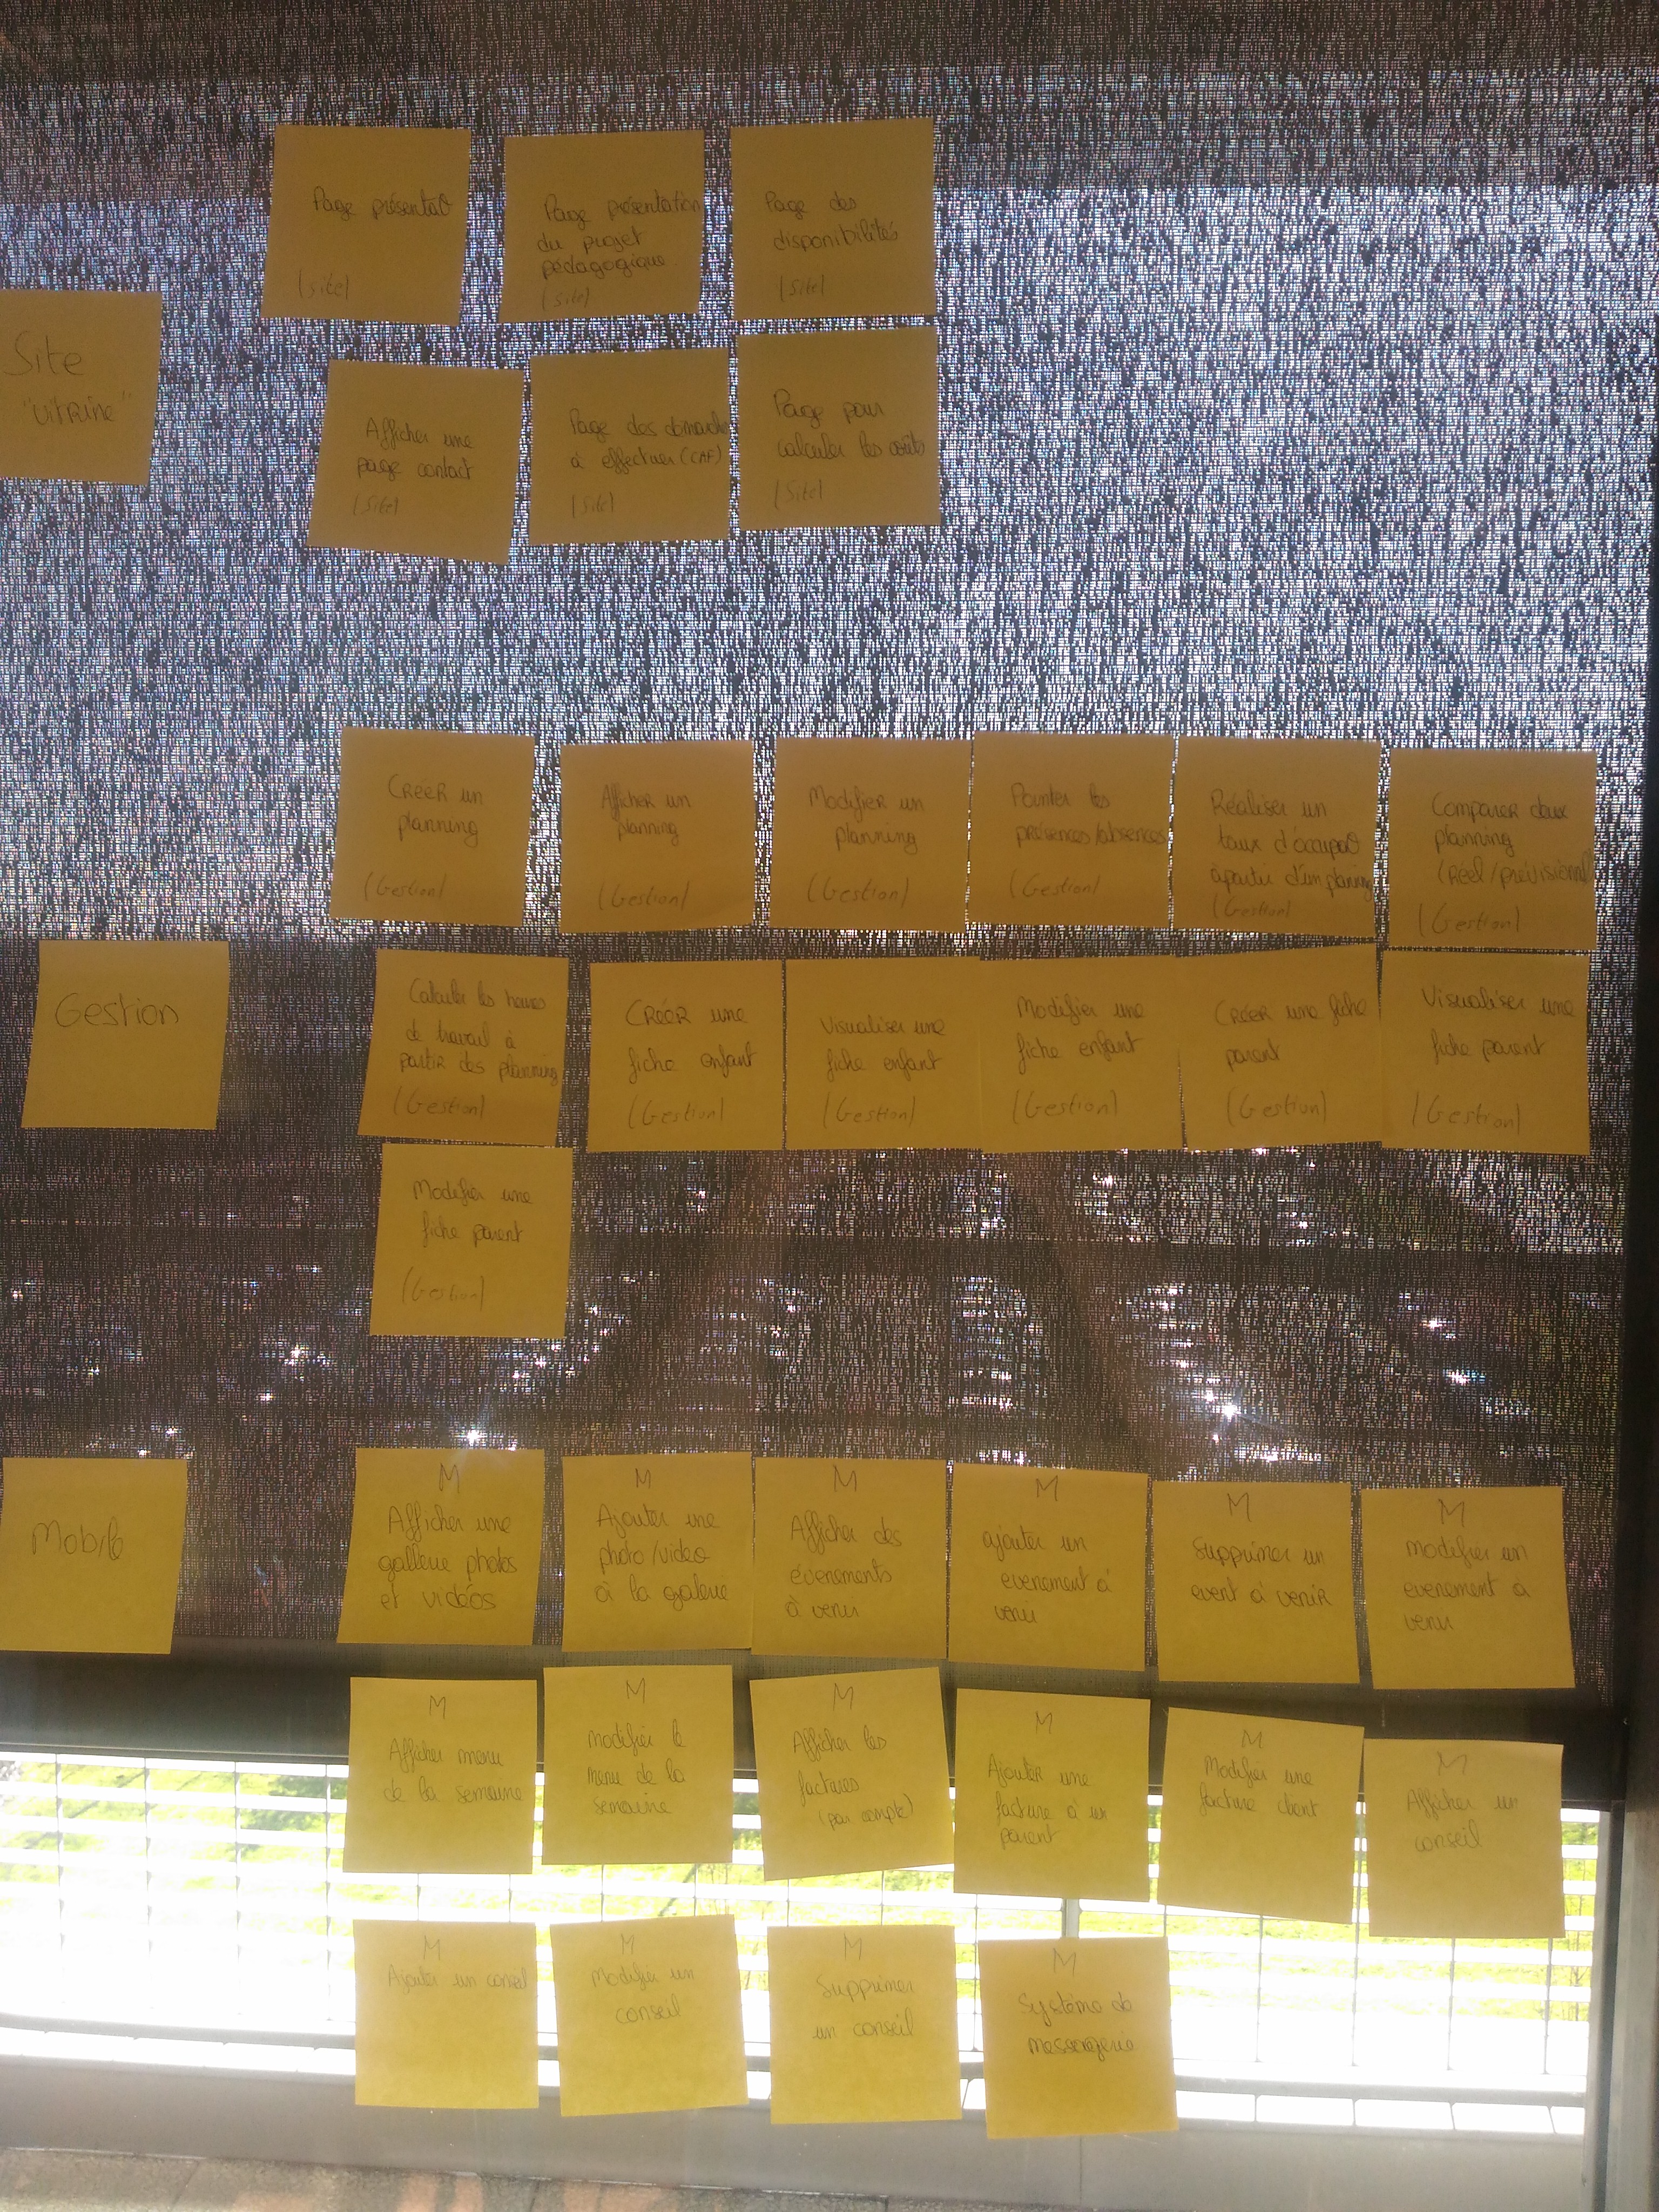 Page présentat°
(site)
Page présentation
du projet
pédagogique
(site)
Page des
disponibilités
(site)
Site
"vitrine"
Afficher une
page contact
(site)
Page des démarches
à effectuer (CAF)
(site)
Page pour
calculer les coûts
(site)
Créer un
planning
(Gestion)
Afficher un
planning
(Gestion)
Modifier un
planning
(Gestion)
Pointer les
présences/absences
(Gestion)
Réaliser un
taux d'occupat°
à partir d'un planning
(Gestion)
Comparer deux
planning
(Réel/prévisionnel)
(Gestion)
Gestion
Calculer les heures
de travail à
partir des planning
(Gestion)
Créer une
fiche enfant
(Gestion)
Visualiser une
fiche enfant
(Gestion)
Modifier une
fiche enfant
(Gestion)
Créer une fiche
parent
(Gestion)
Visualiser une
fiche parent
(Gestion)
Modifier une
fiche parent
(Gestion)
Mobile
M
Afficher une
gallerie photos
et vidéos
M
Ajouter une
photo/video
à la galerie
M
Afficher des
évenements
à venir
M
ajouter un
evenement à
venir
M
Supprimer un
event à venir
M
modifier un
evenement a
venir
M
Afficher menu
de la semaine
M
modifier le
menu de la
semaine
M
Afficher les
factures
(par compte)
M
Ajouter une
facture à un
parent
M
Modifier une
facture client
M
Afficher un
conseil
M
Ajouter un conseil
M
Modifier un
conseil
M
Supprimer
un conseil
M
Système de
messagerie